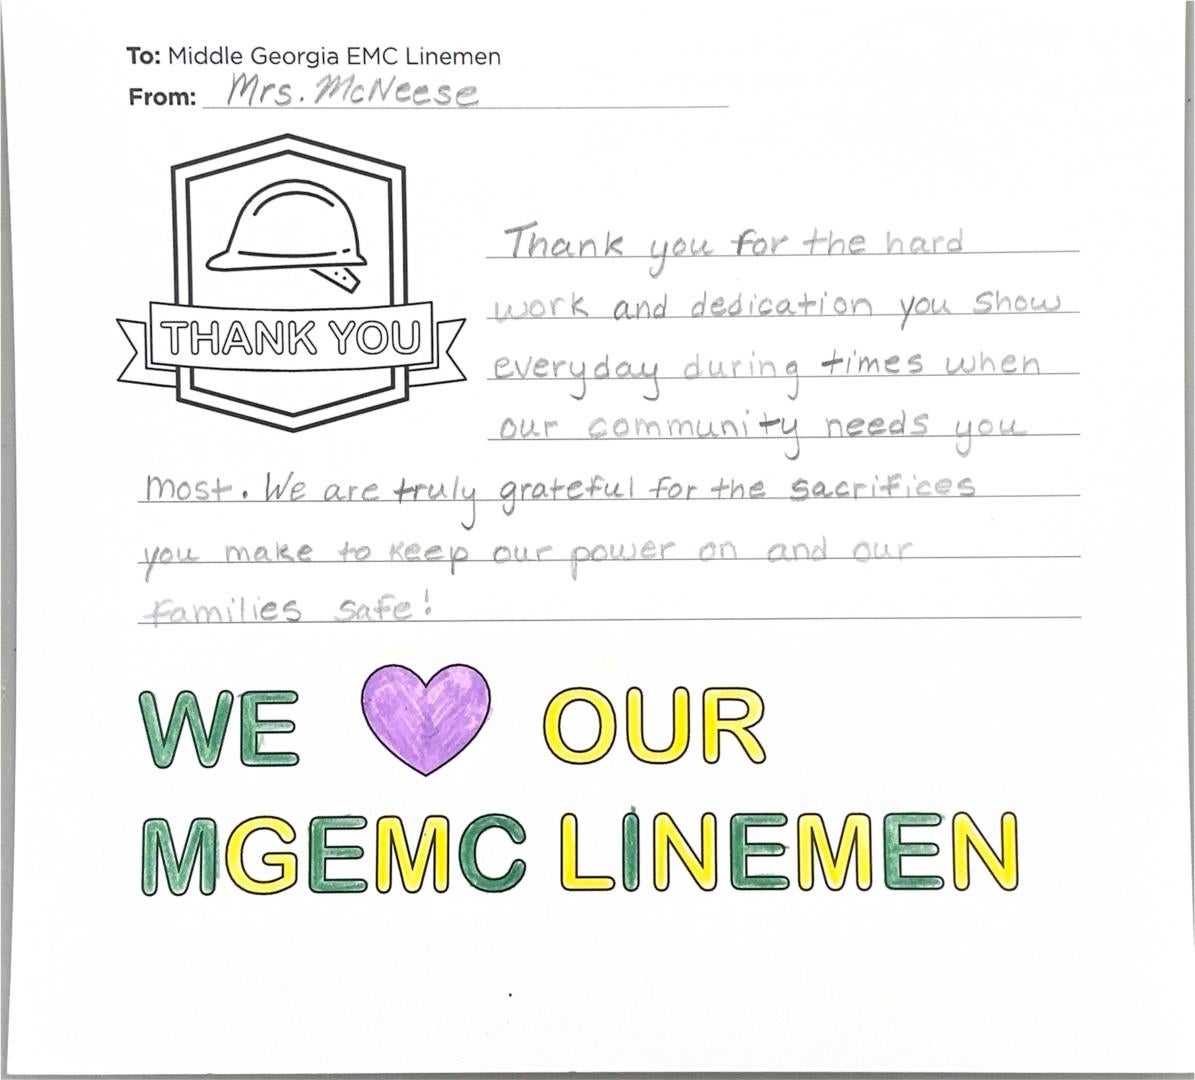 To: Middle Georgia EMC Linemen
From: Mrs. McNeese
THANK YOU
Thank you for the hard
work and dedication you show
everyday during times when
our community needs you
most. We are truly grateful for the sacrifices
you make to keep our power on and our
families safe!
WE OUR
MGEMC LINEMEN